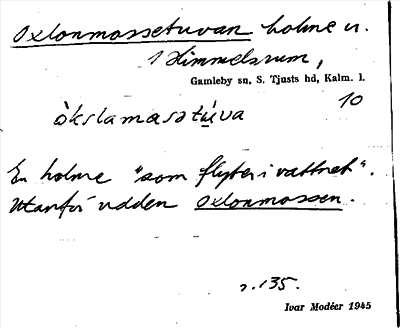 Oxlonmassetuvan holme n.
i Himmelsrum,
Gamleby sn, S. Tjusts hd, Kalm. l.
10
òkslamasatú̱va
En holme "som flyter i vattnet".
Utanför udden Oxlonmossen.
s. 135.
Ivar Modéer 1945